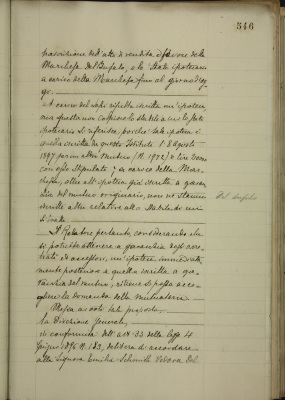 546
trascrizione dell'atto di vendita a favore della
Marchesa Del Bufalo, e lo Stato ipotecario
a carico della Marchesa fino al giorno d'og-
gi.
A carico del
ma questa non colpisce lo stabile a cui lo Stato
ipotecario si riferisce, perché tale ipoteca è
quella iscritta da questo Istituto l' 8 Agosto
1897 per un altro mutuo (N. 1972) di lire
con esso stipulato; a carico della Mar-
chesa, oltre all'ipoteca già iscritta a garan-
zia del mutuo originario, non vi sono
iscritte altre relative allo Stabile di cui
si tratta.
Del Bufalo
Il Relatore pertanto, considerando che
si potrebbe ottenere a garanzia degli arre-
trati ed accessori, un'ipoteca immediata-
mente posteriore a quella iscritta a ga-
ranzia del mutuo, ritiene si possa acco-
gliere la domanda della mutuataria.
Messa ai voti tale proposta,
La Direzione Generale,
in conformità dell'art. 33 della legge 4
Giugno 1896 N. 183, delibera di accordare
alla Signora Emilia Vedova Del